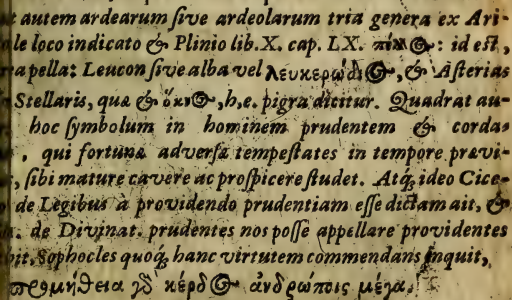 t autem ardearum sive ardeolarum tria genera ex Ari-
le loco indicato & Plinio lib. X. cap. LX. πέλλ&: id est,
capella: Leucon sive alba vel λευκερώδι&, & Asterias
Stellaris, quæ & ὄκν&, h.e. pigra dicitur. Quadrat au-
hoc symbolum in hominem prudentem & corda-
, qui fortunæ adversæ tempestates in tempore prævi-
, sibi mature cavere ac prospicere studet. Atq; ideo Cice-
de Legibus à providendo prudentiam esse dictam ait, &
de Divinat. prudentes nos posse appellare providentes
bit. Sophocles quoq; hanc virtutem commendans inquit,
κέρδ& ἀνθρώποις μέγα.